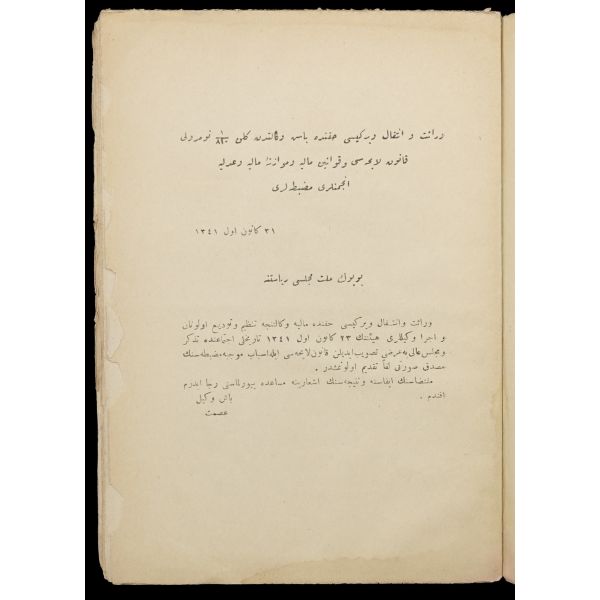 وراثت و انتقال ويركيسى حقنده باش وكالتدن كلن ١/٨٢٢ نومرولى
قانون لايحه‌سى وقوانين ماليه وموازنهٔ ماليه وعدليه
انجمنلرى مضبطه‌لرى
٣١ كانون اول ١٣٤١
بويوك ملت مجلسى رياستنه
وراثت وانتقال ويركيسى حقنده ماليه وكالتنجه تنظيم وتوديع اولونان
و اجرا وكيللرى هيئتنك ٢٣ كانون اول ١٣٤١ تاريخلى اجتماعنده تذكر
ومجلس عالى‌يه عرضى تصويب ايديلن قانون لايحه‌سى ايله اسباب موجبه مضبطه‌سنك
مصدق صورتى لفاً تقديم اولونمشدر .
مقتضاسنك ايفاسنه ونتيجه‌سنك اشعارينه مساعده بيورلماسنى رجا ايدرم
افندم .
باش وكيل
عصمت